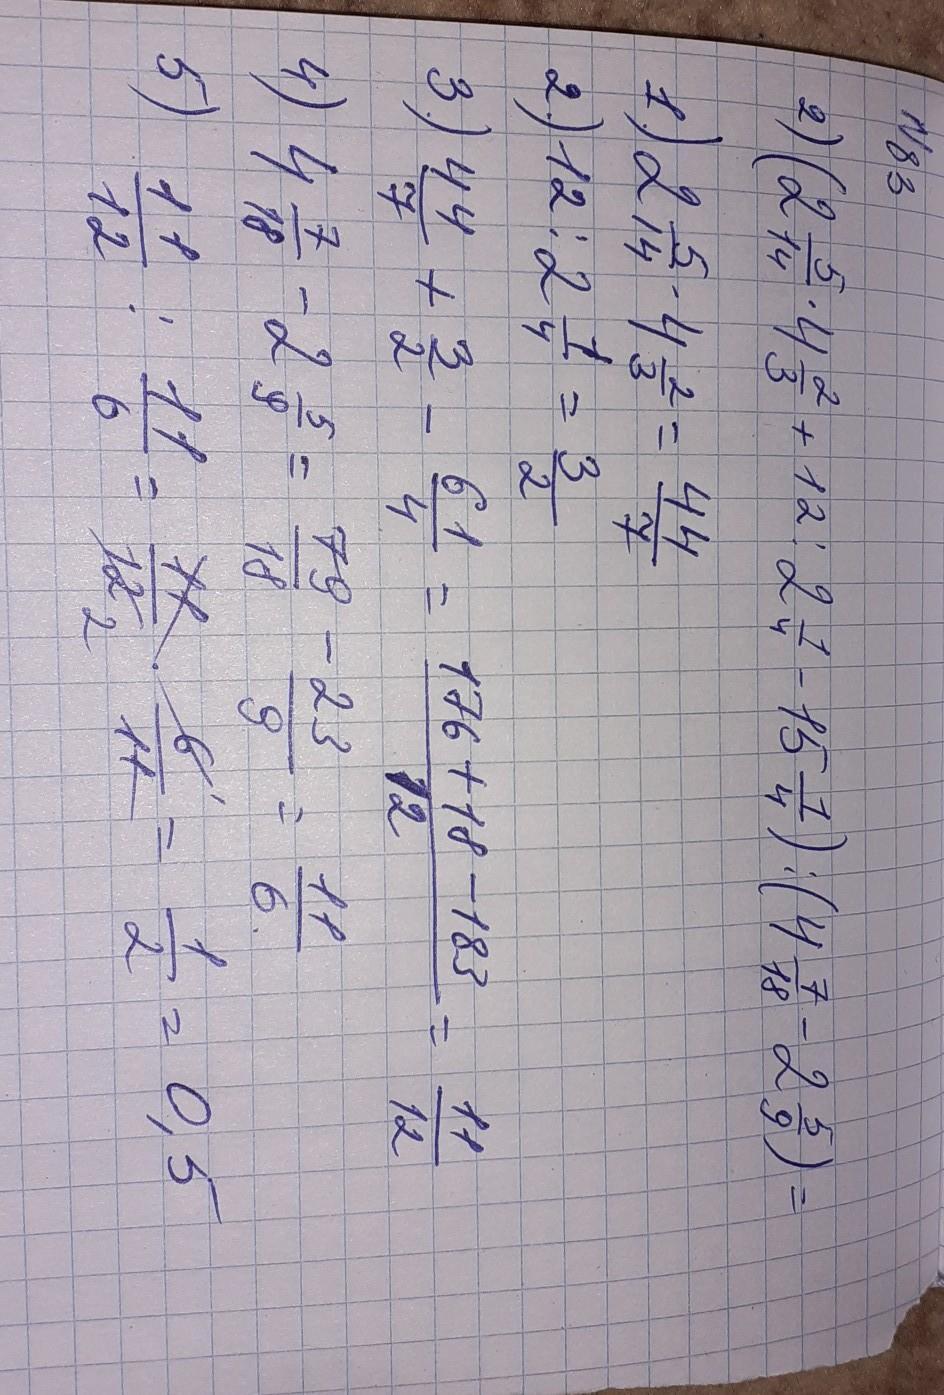 №83
2) (2 5/14 · 4 2/3 + 12 : 2 1/4 - 15 1/4) : (4 7/18 - 2 5/9) =
1.) 2 5/14 · 4 2/3 = 44/7
2.) 12 : 2 1/4 = 3/2
3.) 44/7 + 3/2 - 61/4 = 176+18-183/12 = 11/12
4) 4 7/18 - 2 5/9 = 79/18 - 23/9 = 11/6
5) 11/12 : 11/6 = 11/12 2 · 6 1/11 = 1/2 = 0,5